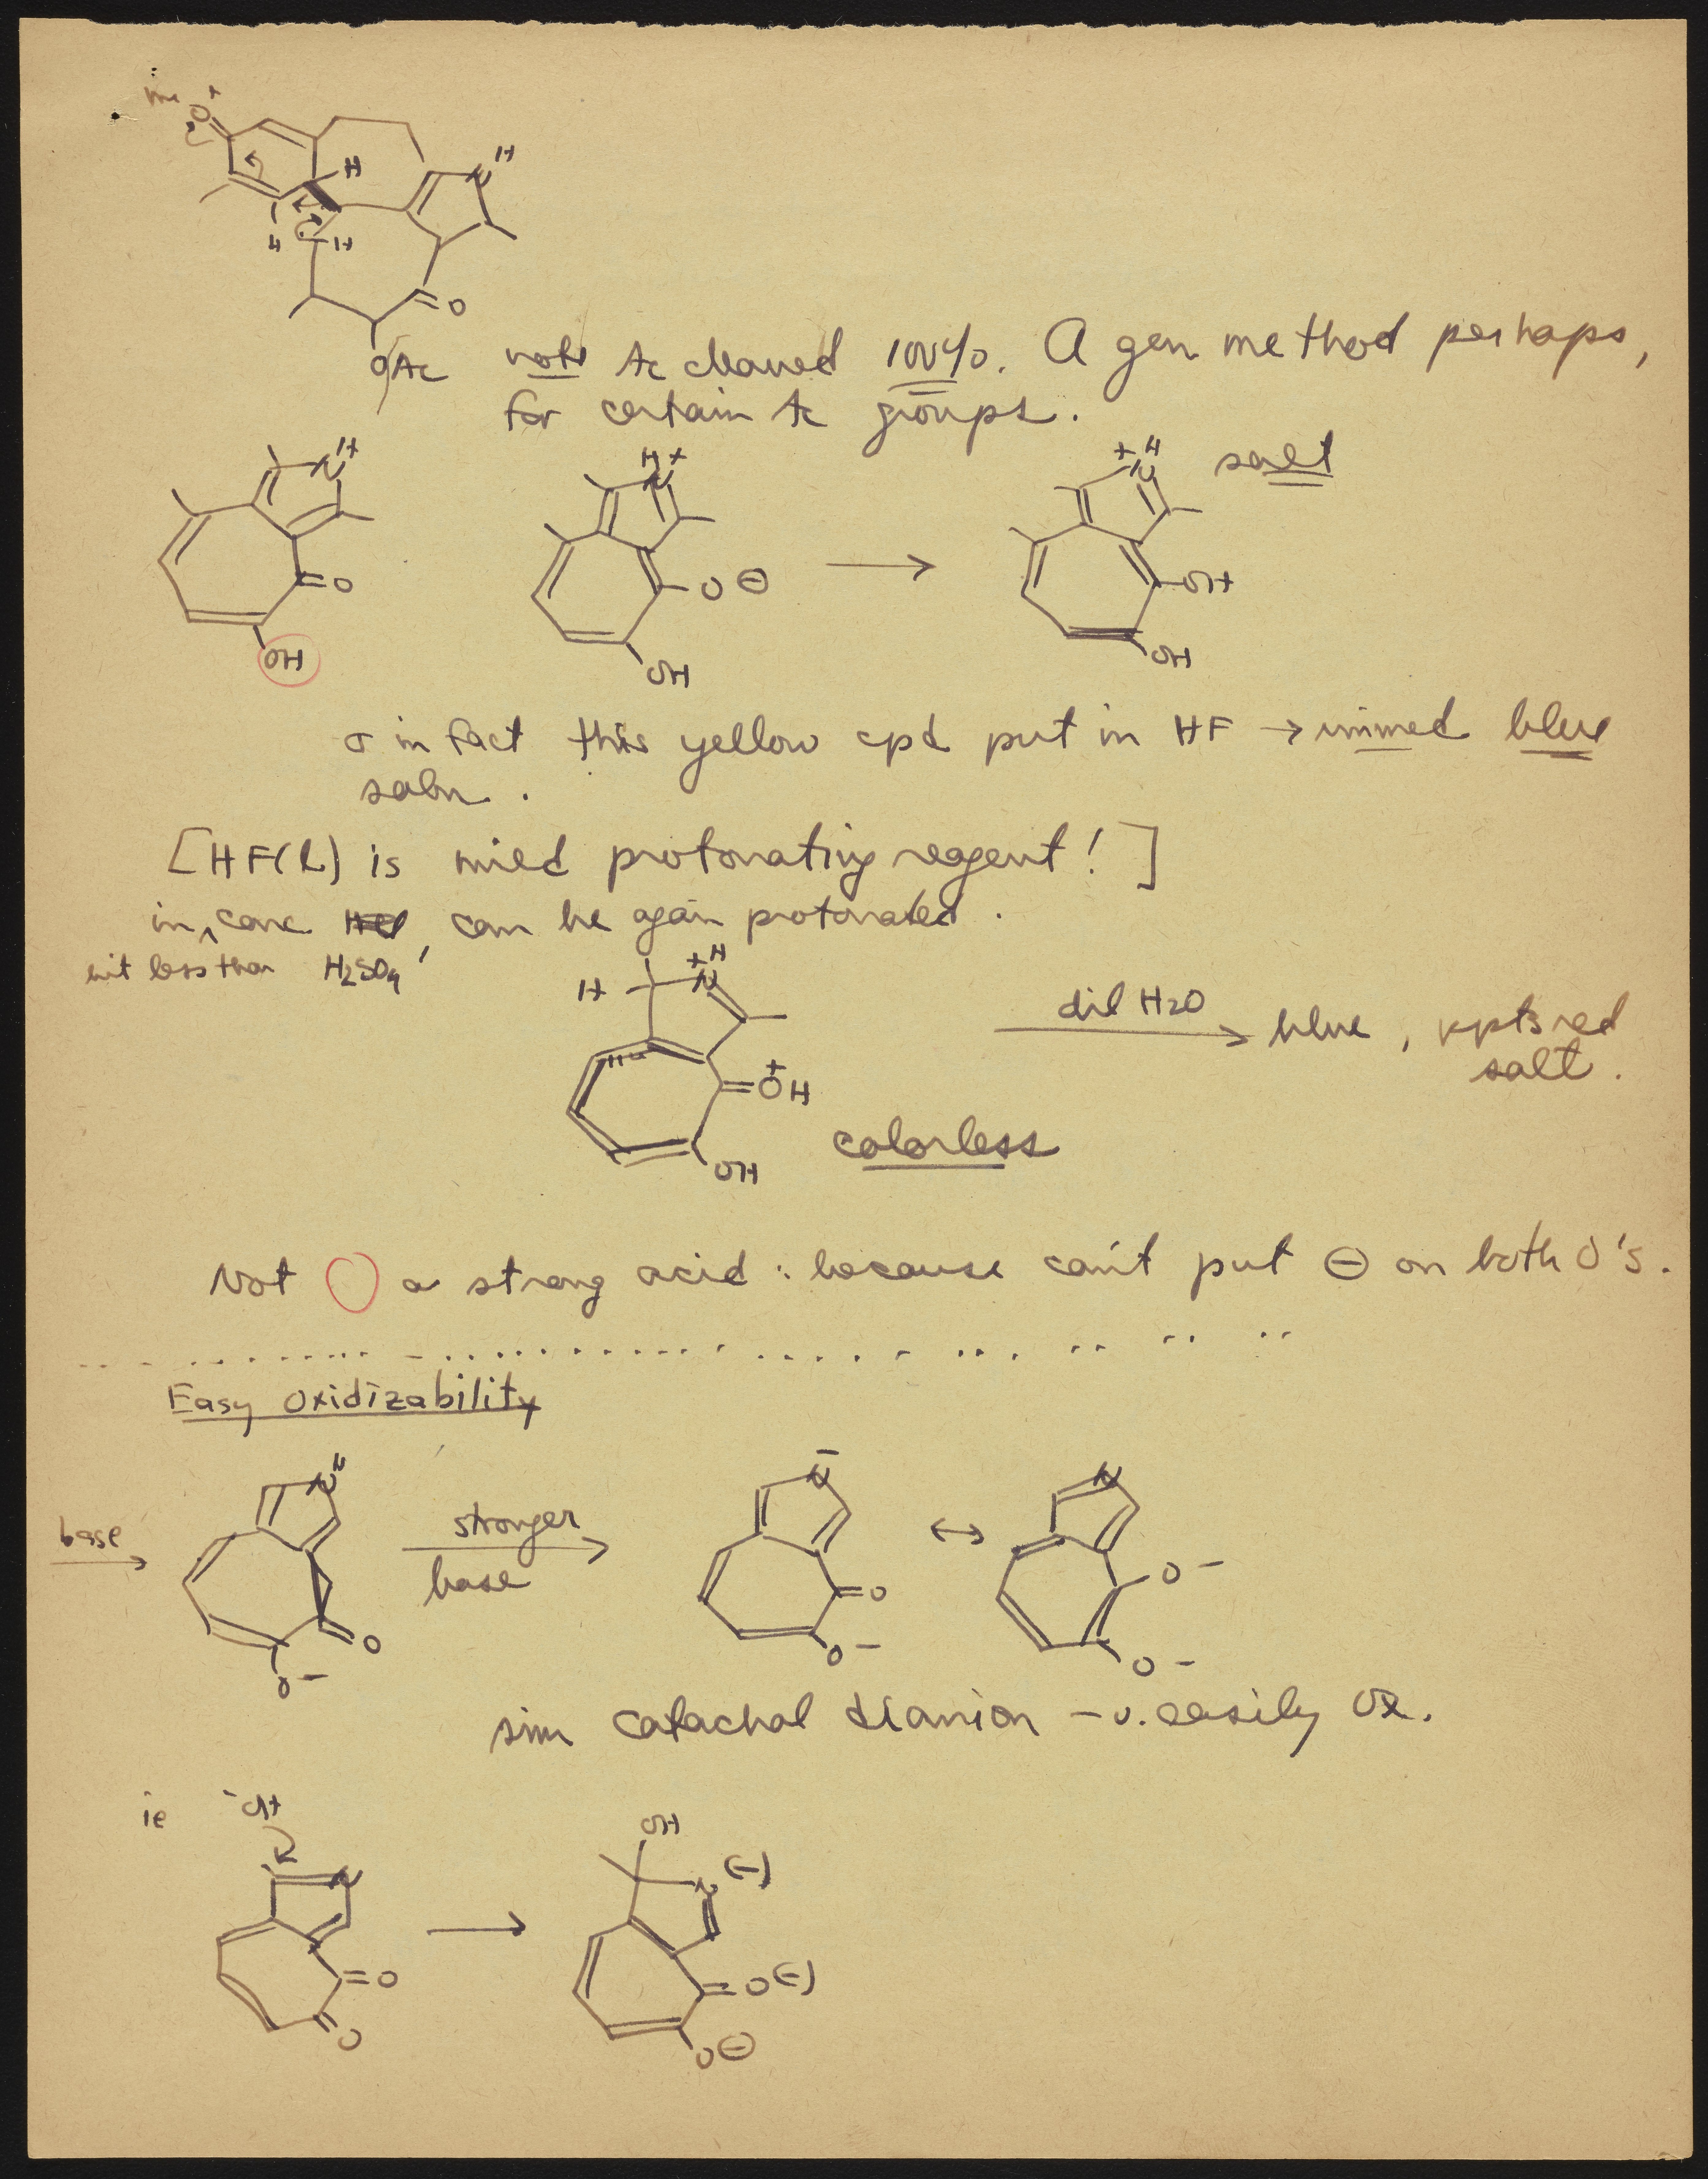 me O+
H
NH
H H
O
OAc
note Ac cleaved 100%. A gen method perhaps,
for certain Ac groups.
NH
O
OH
H+
N
O ⊖
OH
+H
N
salt
OH
OH
in fact this yellow cpd put in HF → immed blue
soln.
[HF(l) is mild protonating reagent!]
in conc HCl, can be again protonated.
but less than H2SO4
H
+H
N
+OH
OH
colorless
dil H2O → blue, ppts red
salt.
Not a strong acid: because can't put ⊖ on both O's.
Easy Oxidizability
base
NH
O
O-
stronger
base
N-
O
O-
↔
N
O-
O-
sim catachol dianion - v. easily Ox.
ie -OH
N
O
O
→
OH
N(-)
O(-)
O⊖